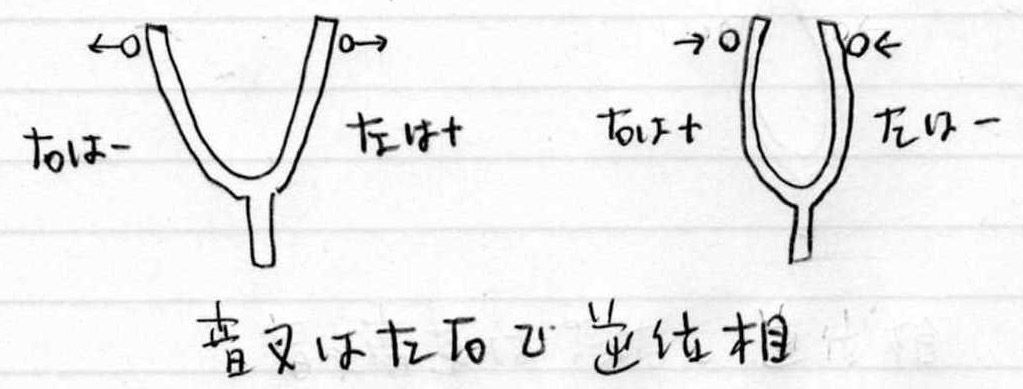 右は−
左は+
右は+
左は−
音叉は左右で逆位相